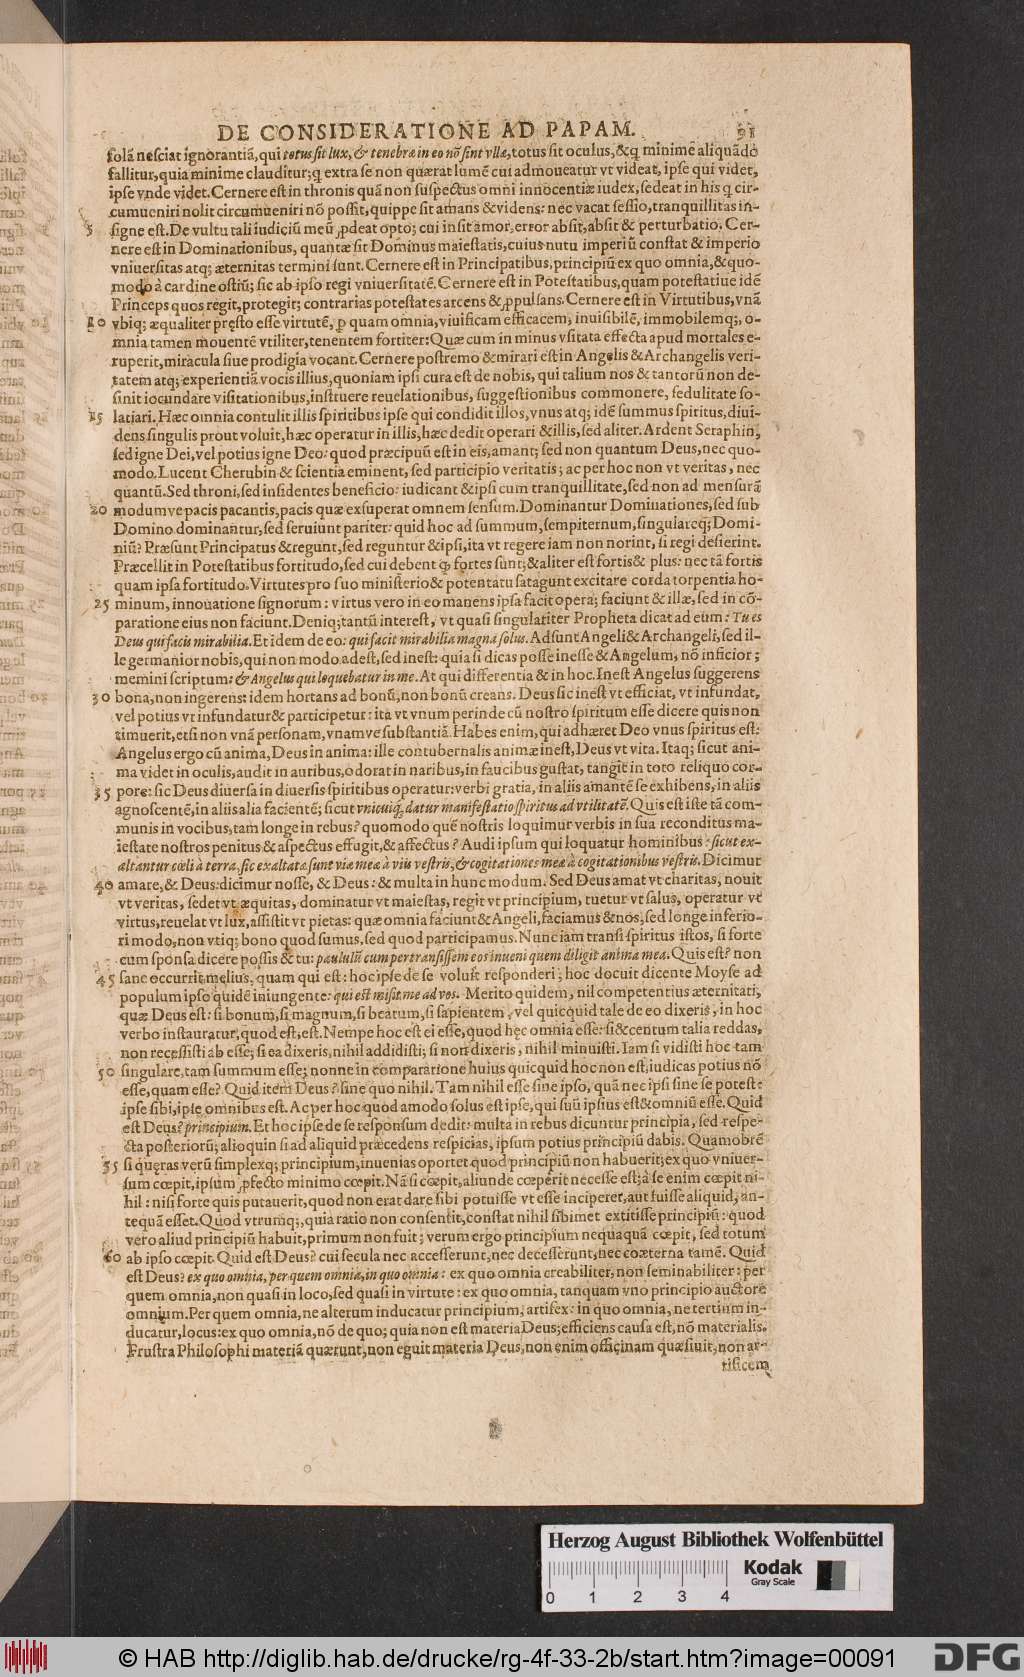 DE CONSIDERATIONE AD PAPAM. 91
ſolã neſciat ignorantiã, qui totus ſit lux, & tenebræ in eo nõ ſint vllæ, totus ſit oculus, & q minimè aliquãdo
fallitur, quia minime clauditur; q extra ſe non quærat lumẽ cui admoueatur vt videat, ipſe qui videt,
ipſe vnde videt. Cernere eſt in thronis quã non ſuſpectus omni innocentiæ iudex, ſedeat in his q cir-
cumueniri nolit circumueniri nõ poſſit, quippe ſit amans & videns: nec vacat ſeſſio, tranquillitas in-
5 ſigne eſt. De vultu tali iudiciũ meũ ꝓdeat opto; cui inſit amor, error abſit, abſit & perturbatio. Cer-
nere eſt in Dominationibus, quantæ ſit Dominus maieſtatis, cuius nutu imperiũ conſtat & imperio
vniuerſitas atq; æternitas termini ſunt. Cernere eſt in Principatibus, principiũ ex quo omnia, & quo-
modo à cardine oſtiũ; ſic ab ipſo regi vniuerſitatẽ. Cernere eſt in Poteſtatibus, quam poteſtatiue idẽ
Princeps quos regit, protegit; contrarias poteſtates arcens & ꝓpulſans. Cernere eſt in Virtutibus, vnã
10 vbiq; æqualiter pręſto eſſe virtutẽ, ꝑ quam omnia, viuificam efficacem, inuiſibilẽ, immobilemq;, o-
mnia tamen mouentẽ vtiliter, tenentem fortiter: Quæ cum in minus vſitata effecta apud mortales e-
ruperit, miracula ſiue prodigia vocant. Cernere poſtremo & mirari eſt in Angelis & Archangelis veri-
tatem atq; experientiã vocis illius, quoniam ipſi cura eſt de nobis, qui talium nos & tantorũ non de-
ſinit iocundare viſitationibus, inſtruere reuelationibus, ſuggeſtionibus commonere, ſedulitate ſo-
15 latiari. Hæc omnia contulit illis ſpiritibus ipſe qui condidit illos, vnus atq; idẽ ſummus ſpiritus, diui-
dens ſingulis prout voluit, hæc operatur in illis, hæc dedit operari & illis, ſed aliter. Ardent Seraphin,
ſed igne Dei, vel potius igne Deo: quod præcipuũ eſt in eis, amant; ſed non quantum Deus, nec quo-
modo. Lucent Cherubin & ſcientia eminent, ſed participio veritatis; ac per hoc non vt veritas, nec
quantũ. Sed throni, ſed inſidentes beneficio: iudicant & ipſi cum tranquillitate, ſed non ad menſurã
20 modumve pacis pacantis, pacis quæ exſuperat omnem ſenſum. Dominantur Dominationes, ſed ſub
Domino dominantur, ſed ſeruiunt pariter: quid hoc ad ſummum, ſempiternum, ſingulareq; Domi-
niũ? Præſunt Principatus & regunt, ſed reguntur & ipſi, ita vt regere iam non norint, ſi regi deſierint.
Præcellit in Poteſtatibus fortitudo, ſed cui debent ꝙ fortes ſunt; & aliter eſt fortis & plus: nec tã fortis
quam ipſa fortitudo. Virtutes pro ſuo miniſterio & potentatu ſatagunt excitare corda torpentia ho-
25 minum, innouatione ſignorum: virtus vero in eo manens ipſa facit opera; faciunt & illæ, ſed in cõ-
paratione eius non faciunt. Deniq; tantũ intereſt, vt quaſi ſingulariter Propheta dicat ad eum: Tu es
Deus qui facis mirabilia. Et idem de eo: qui facit mirabilia magna ſolus. Adſunt Angeli & Archangeli, ſed il-
le germanior nobis, qui non modo adeſt, ſed ineſt: quia ſi dicas poſſe ineſſe & Angelum, nõ inficior;
memini ſcriptum: & Angelus qui loquebatur in me. At qui differentia & in hoc. Ineſt Angelus ſuggerens
30 bona, non ingerens: idem hortans ad bonũ, non bonũ creans. Deus ſic ineſt vt efficiat, vt infundat,
vel potius vt infundatur & participetur: ita vt vnum perinde cũ noſtro ſpiritum eſſe dicere quis non
timuerit, etſi non vnã perſonam, vnamve ſubſtantiã. Habes enim, qui adhæret Deo vnus ſpiritus eſt:
Angelus ergo cũ anima, Deus in anima: ille contubernalis animæ ineſt, Deus vt vita. Itaq; ſicut ani-
ma videt in oculis, audit in auribus, odorat in naribus, in faucibus guſtat, tangit in toto reliquo cor-
35 pore: ſic Deus diuerſa in diuerſis ſpiritibus operatur: verbi gratia, in aliis amantẽ ſe exhibens, in aliis
agnoſcentẽ, in aliis alia facientẽ; ſicut vnicuiq; datur manifeſtatio ſpiritus ad vtilitatẽ. Quis eſt iſte tã com-
munis in vocibus, tam longe in rebus? quomodo quẽ noſtris loquimur verbis in ſua reconditus ma-
ieſtate noſtros penitus & aſpectus effugit, & affectus? Audi ipſum qui loquatur hominibus: ſicut ex-
altantur cœli à terra, ſic exaltatæ ſunt viæ meæ à viis veſtris, & cogitationes meæ à cogitationibus veſtris. Dicimur
40 amare, & Deus: dicimur noſſe, & Deus: & multa in hunc modum. Sed Deus amat vt charitas, nouit
vt veritas, ſedet vt æquitas, dominatur vt maieſtas, regit vt principium, tuetur vt ſalus, operatur vt
virtus, reuelat vt lux, aſſiſtit vt pietas: quæ omnia faciunt & Angeli, faciamus & nos, ſed longe inferio-
ri modo, non vtiq; bono quod ſumus, ſed quod participamus. Nunc iam tranſi ſpiritus iſtos, ſi forte
cum ſponſa dicere poſſis & tu: paululũ cum pertranſiſſem eos inueni quem diligit anima mea. Quis eſt? non
45 ſane occurrit melius, quam qui eſt: hoc ipſe de ſe voluit reſponderi; hoc docuit dicente Moyſe ad
populum ipſo quidẽ iniungente: qui eſt miſit me ad vos. Merito quidem, nil competentius æternitati,
quæ Deus eſt: ſi bonum, ſi magnum, ſi beatum, ſi ſapientem, vel quicquid tale de eo dixeris, in hoc
verbo inſtauratur, quod eſt, eſt. Nempe hoc eſt ei eſſe, quod hęc omnia eſſe: ſi & centum talia reddas,
non receſſiſti ab eſſe; ſi ea dixeris, nihil addidiſti; ſi non dixeris, nihil minuiſti. Iam ſi vidiſti hoc tam
50 ſingulare, tam ſummum eſſe; nonne in comparatione huius quicquid hoc non eſt, iudicas potius nõ
eſſe, quam eſſe? Quid item Deus? ſine quo nihil. Tam nihil eſſe ſine ipſo, quã nec ipſi ſine ſe poteſt:
ipſe ſibi, ipſe omnibus eſt. Ac per hoc quod amodo ſolus eſt ipſe, qui ſuũ ipſius eſt & omniũ eſſe. Quid
eſt Deus? principium. Et hoc ipſe de ſe reſponſum dedit: multa in rebus dicuntur principia, ſed reſpe-
cta poſteriorũ; alioquin ſi ad aliquid præcedens reſpicias, ipſum potius principiũ dabis. Quamobrẽ
55 ſi quęras verũ ſimplexq; principium, inuenias oportet quod principiũ non habuerit; ex quo vniuer-
ſum cœpit, ipſum ꝓfecto minimo cœpit. Nã ſi cœpit, aliunde cœperit neceſſe eſt; à ſe enim cœpit ni-
hil: niſi forte quis putauerit, quod non erat dare ſibi potuiſſe vt eſſe inciperet, aut fuiſſe aliquid, an-
tequã eſſet. Quod vtrumq;, quia ratio non conſentit, conſtat nihil ſibimet extitiſſe principiũ: quod
vero aliud principiũ habuit, primum non fuit; verum ergo principium nequaquã cœpit, ſed totum
60 ab ipſo cœpit. Quid eſt Deus? cui ſecula nec acceſſerunt, nec deceſſerunt, nec coæterna tamẽ. Quid
eſt Deus? ex quo omnia, per quem omnia, in quo omnia: ex quo omnia creabiliter, non ſeminabiliter: per
quem omnia, non quaſi in loco, ſed quaſi in virtute: ex quo omnia, tanquam vno principio auctore
omnium. Per quem omnia, ne alterum inducatur principium, artifex: in quo omnia, ne tertium in-
ducatur, locus: ex quo omnia, nõ de quo; quia non eſt materia Deus; efficiens cauſa eſt, nõ materialis.
Fruſtra Philoſophi materiã quærunt, non eguit materia Deus, non enim officinam quæſiuit, non ar-
tificem
Herzog August Bibliothek Wolfenbüttel
Kodak
Gray Scale
0 1 2 3 4
© HAB http://diglib.hab.de/drucke/rg-4f-33-2b/start.htm?image=00091
DFG